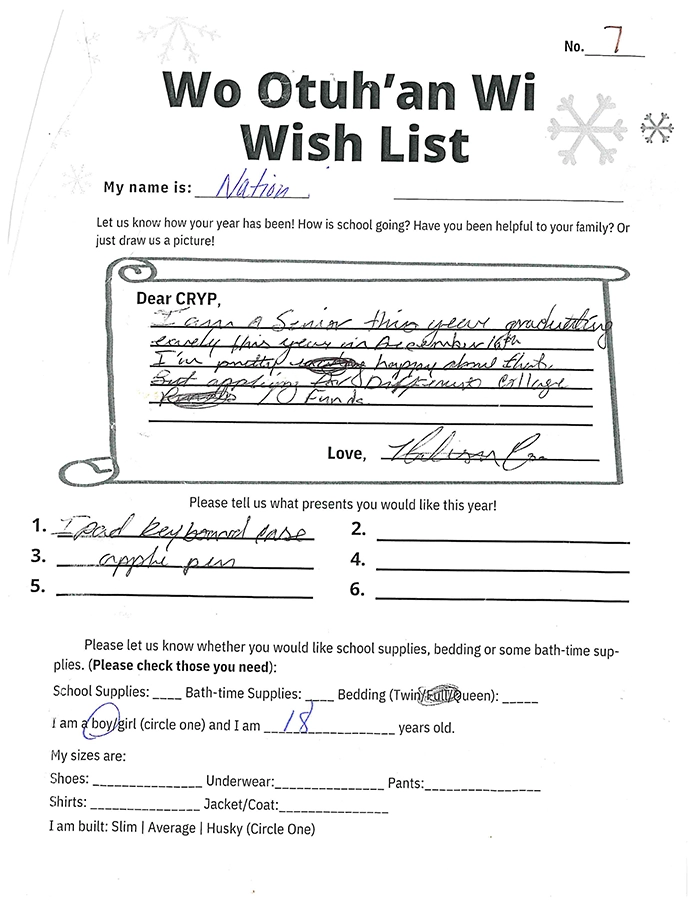 No. 7
Wo Otuh'an Wi
Wish List
My name is: Nation
Let us know how your year has been! How is school going? Have you been helpful to your family? Or
just draw us a picture!
Dear CRYP,
I am a Senior this year graduating
early this year in December 16th
I'm pretty happy about that.
But applying for Different College
Funds.
Love,
Please tell us what presents you would like this year!
1. Ipad keyboard case 2.
3. apple pen 4.
5. 6.
Please let us know whether you would like school supplies, bedding or some bath-time sup-
plies. (Please check those you need):
School Supplies: ____ Bath-time Supplies: ____ Bedding (Twin/Full/Queen): _____
I am a boy/girl (circle one) and I am 18 years old.
My sizes are:
Shoes: ______________ Underwear:______________ Pants:______________
Shirts: ______________ Jacket/Coat:______________
I am built: Slim | Average | Husky (Circle One)